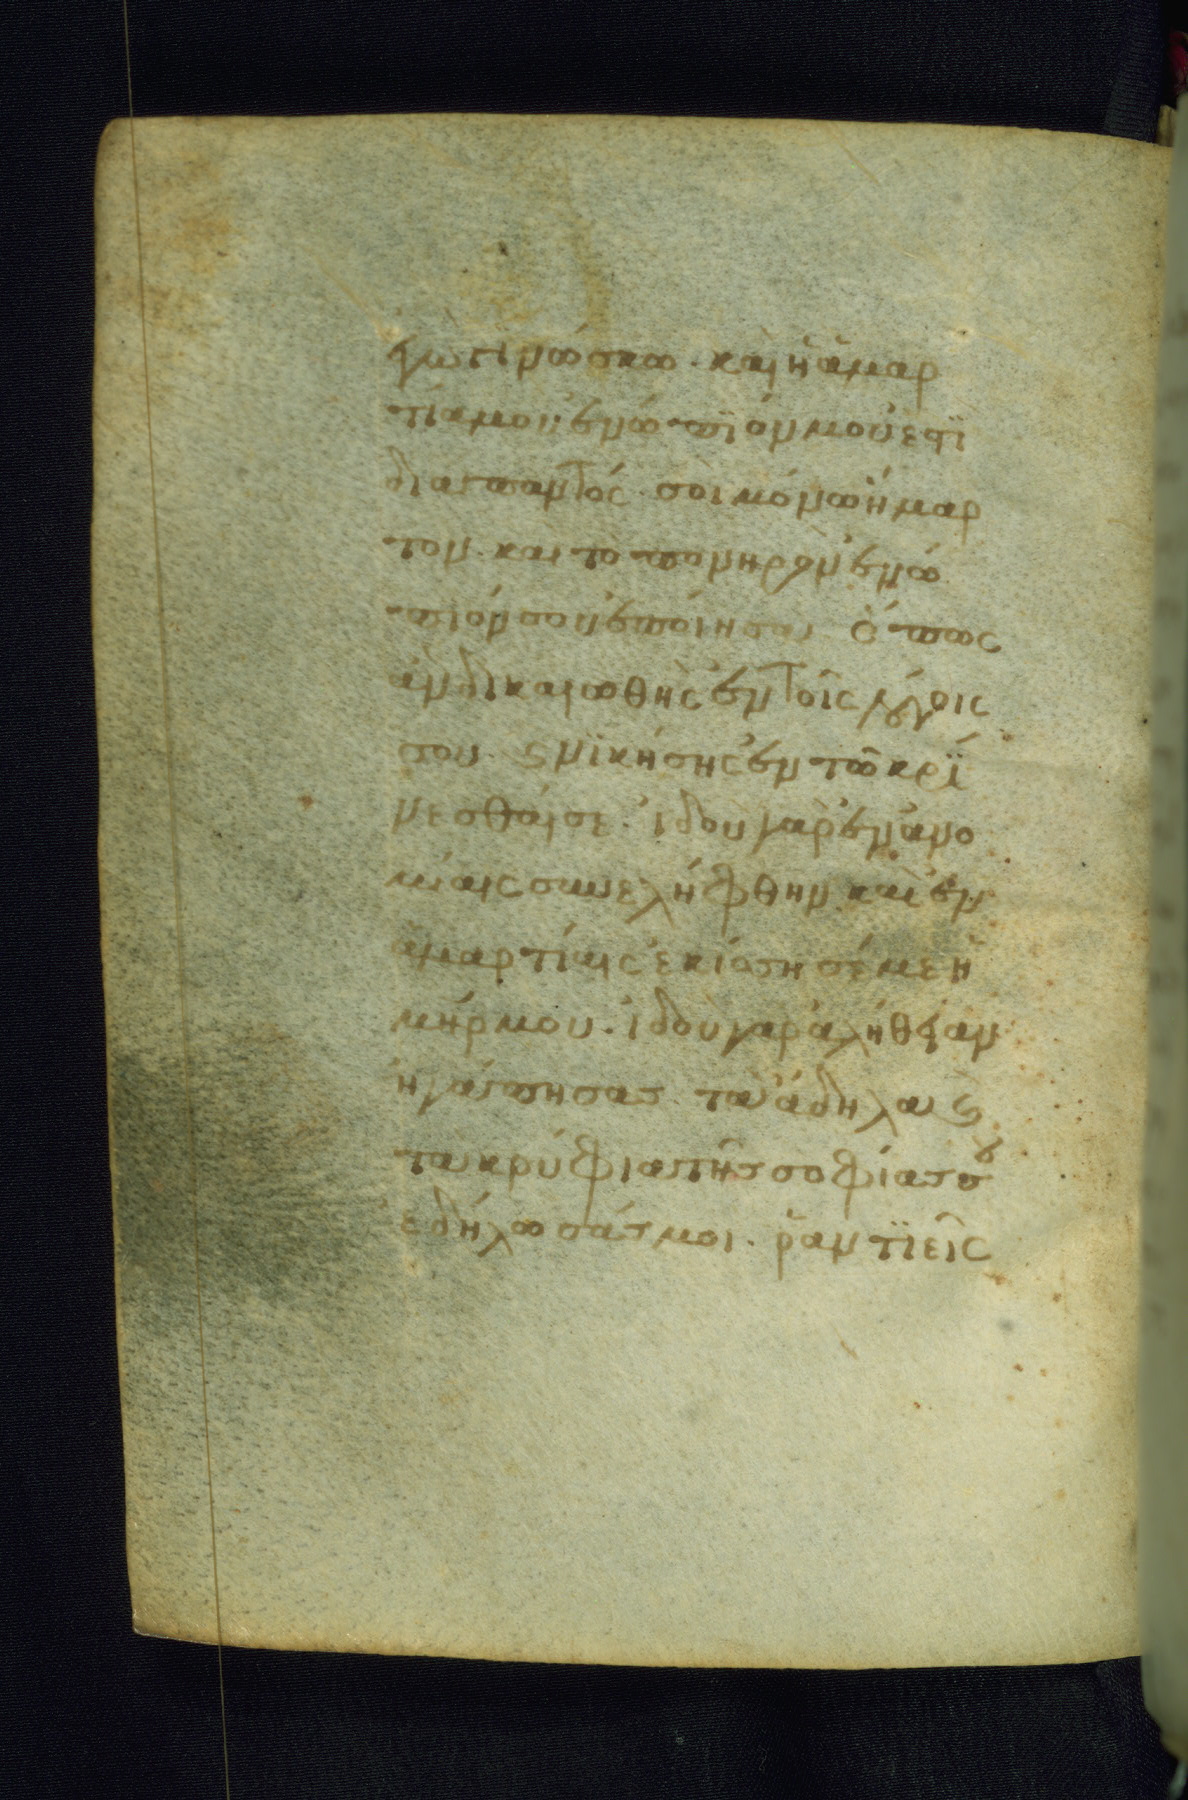 ἐγὼ γινώσκω· καὶ ἡ ἁμαρ
τία μου ἐνώπϊόν μου ἐστϊ
διαπαντός· σοὶ μόνω ἥμαρ
τον· καὶ το πονηρὸν ἐνώ
πιόν σου ἐποίησα· Ὅπως
ἀν δικαιωθῆς ἐν τοῖς λόγοις
σου· ϗ νϊκήσης ἐν τῶ κρί
νεσθαί σε· ἰδοὺ γὰρ ἐν ἀνο
μίαις συνελήφθην καὶ ἐν
αμαρτίαις ἐκίσσησέ με ἡ
μήρ μου· ἰδοὺ γὰρ ἀλήθειαν
ἠγάπησας τὰ ἄδηλα ϗ
τὰ κρύφια τῆς σοφίας σου
ἐδήλωσάς μοι· ῥαντϊεῖς